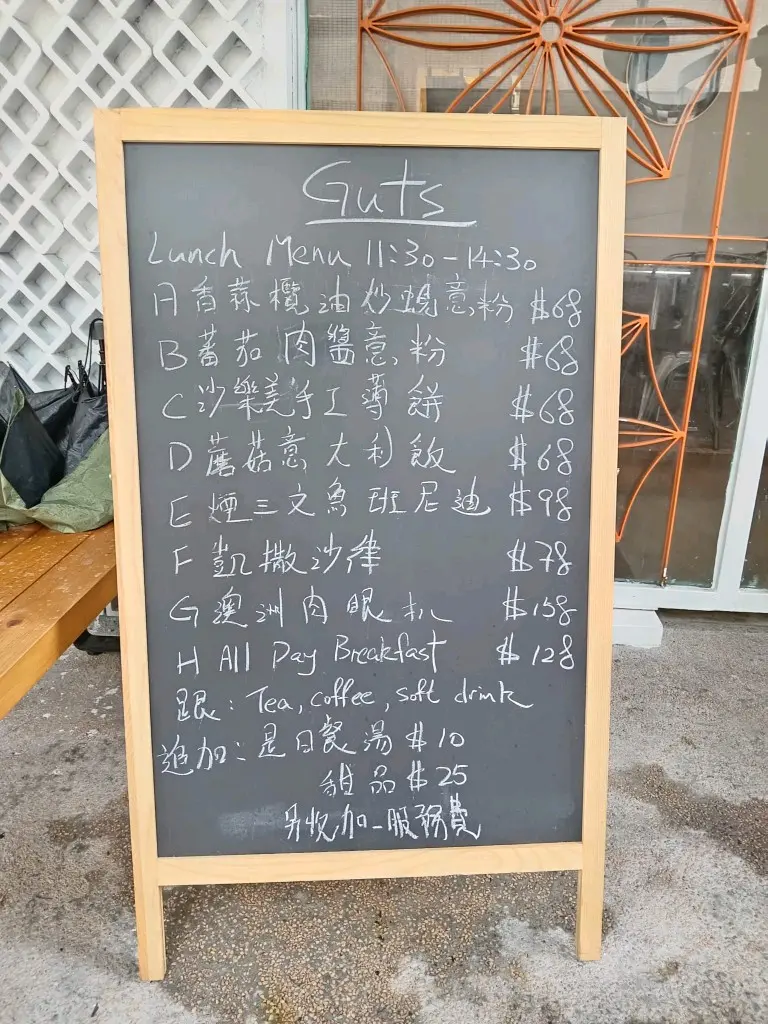 Guts
Lunch Menu 11:30-14:30
A 香蒜欖油炒蜆意粉 $68
B 蕃茄肉醬意粉 $68
C 沙樂美手工薄餅 $68
D 蘑菇意大利飯 $68
E 煙三文魚班尼迪 $98
F 凱撒沙律 $78
G 澳洲肉眼扒 $158
H All Day Breakfast $128
跟: Tea, coffee, soft drink
追加: 是日餐湯 $10
甜品 $25
另收加一服務費